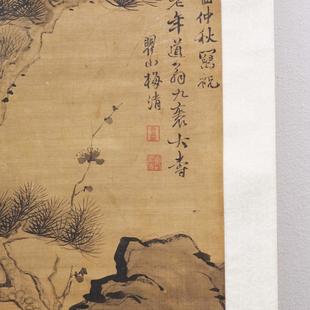 仲秋寫祝
老年道翁九袠大壽
瞿山梅清